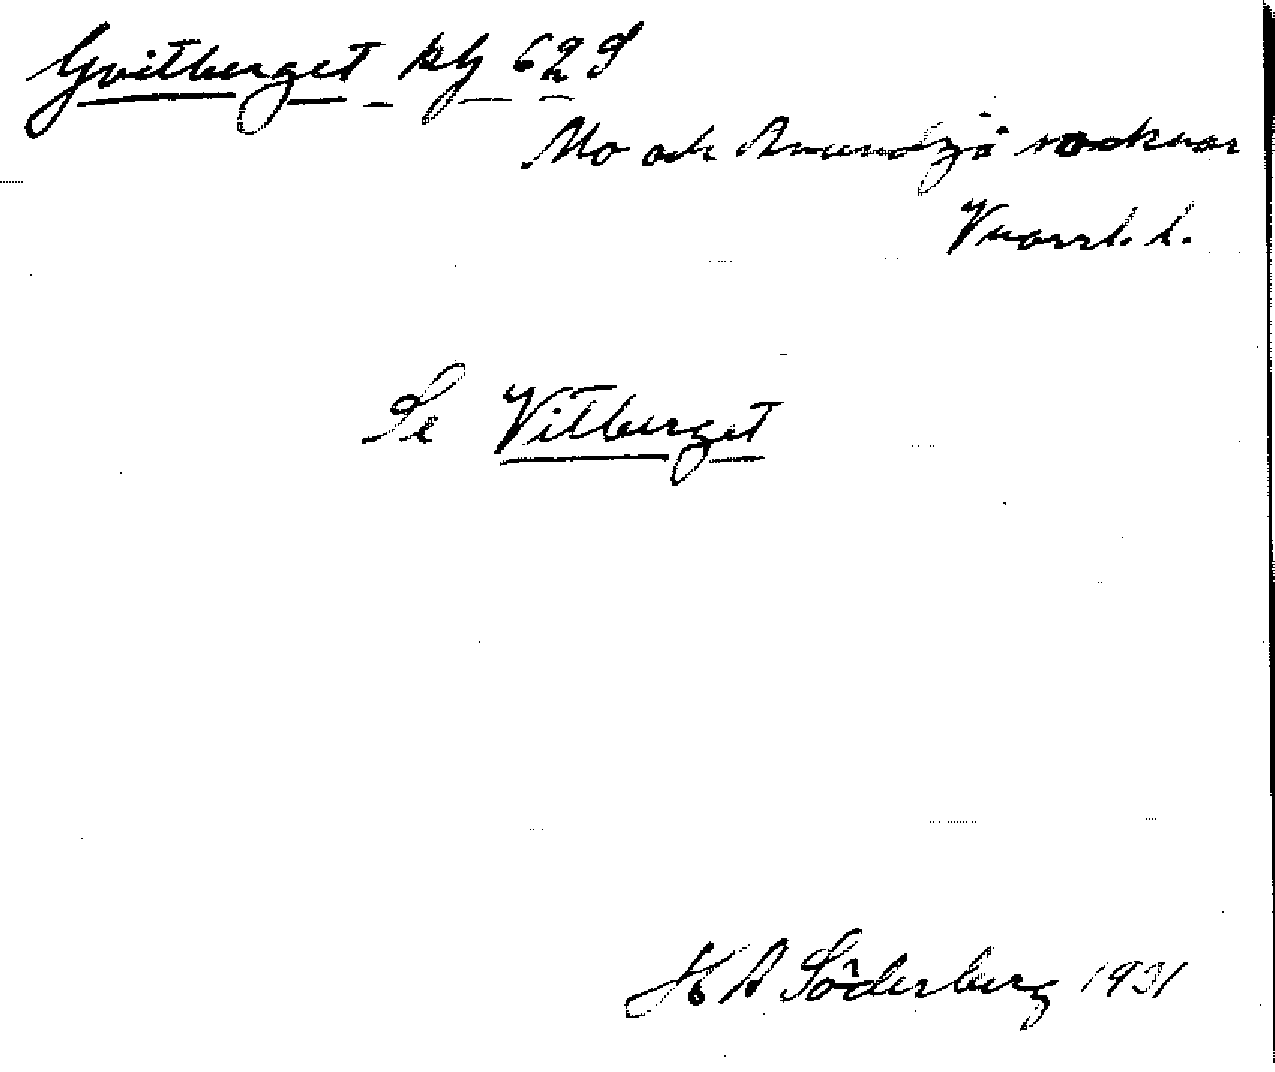 Gvitberget
Mo och Anundsjö socknar
Vnorrl. l.
Se Vitberget
K A Söderberg 1931